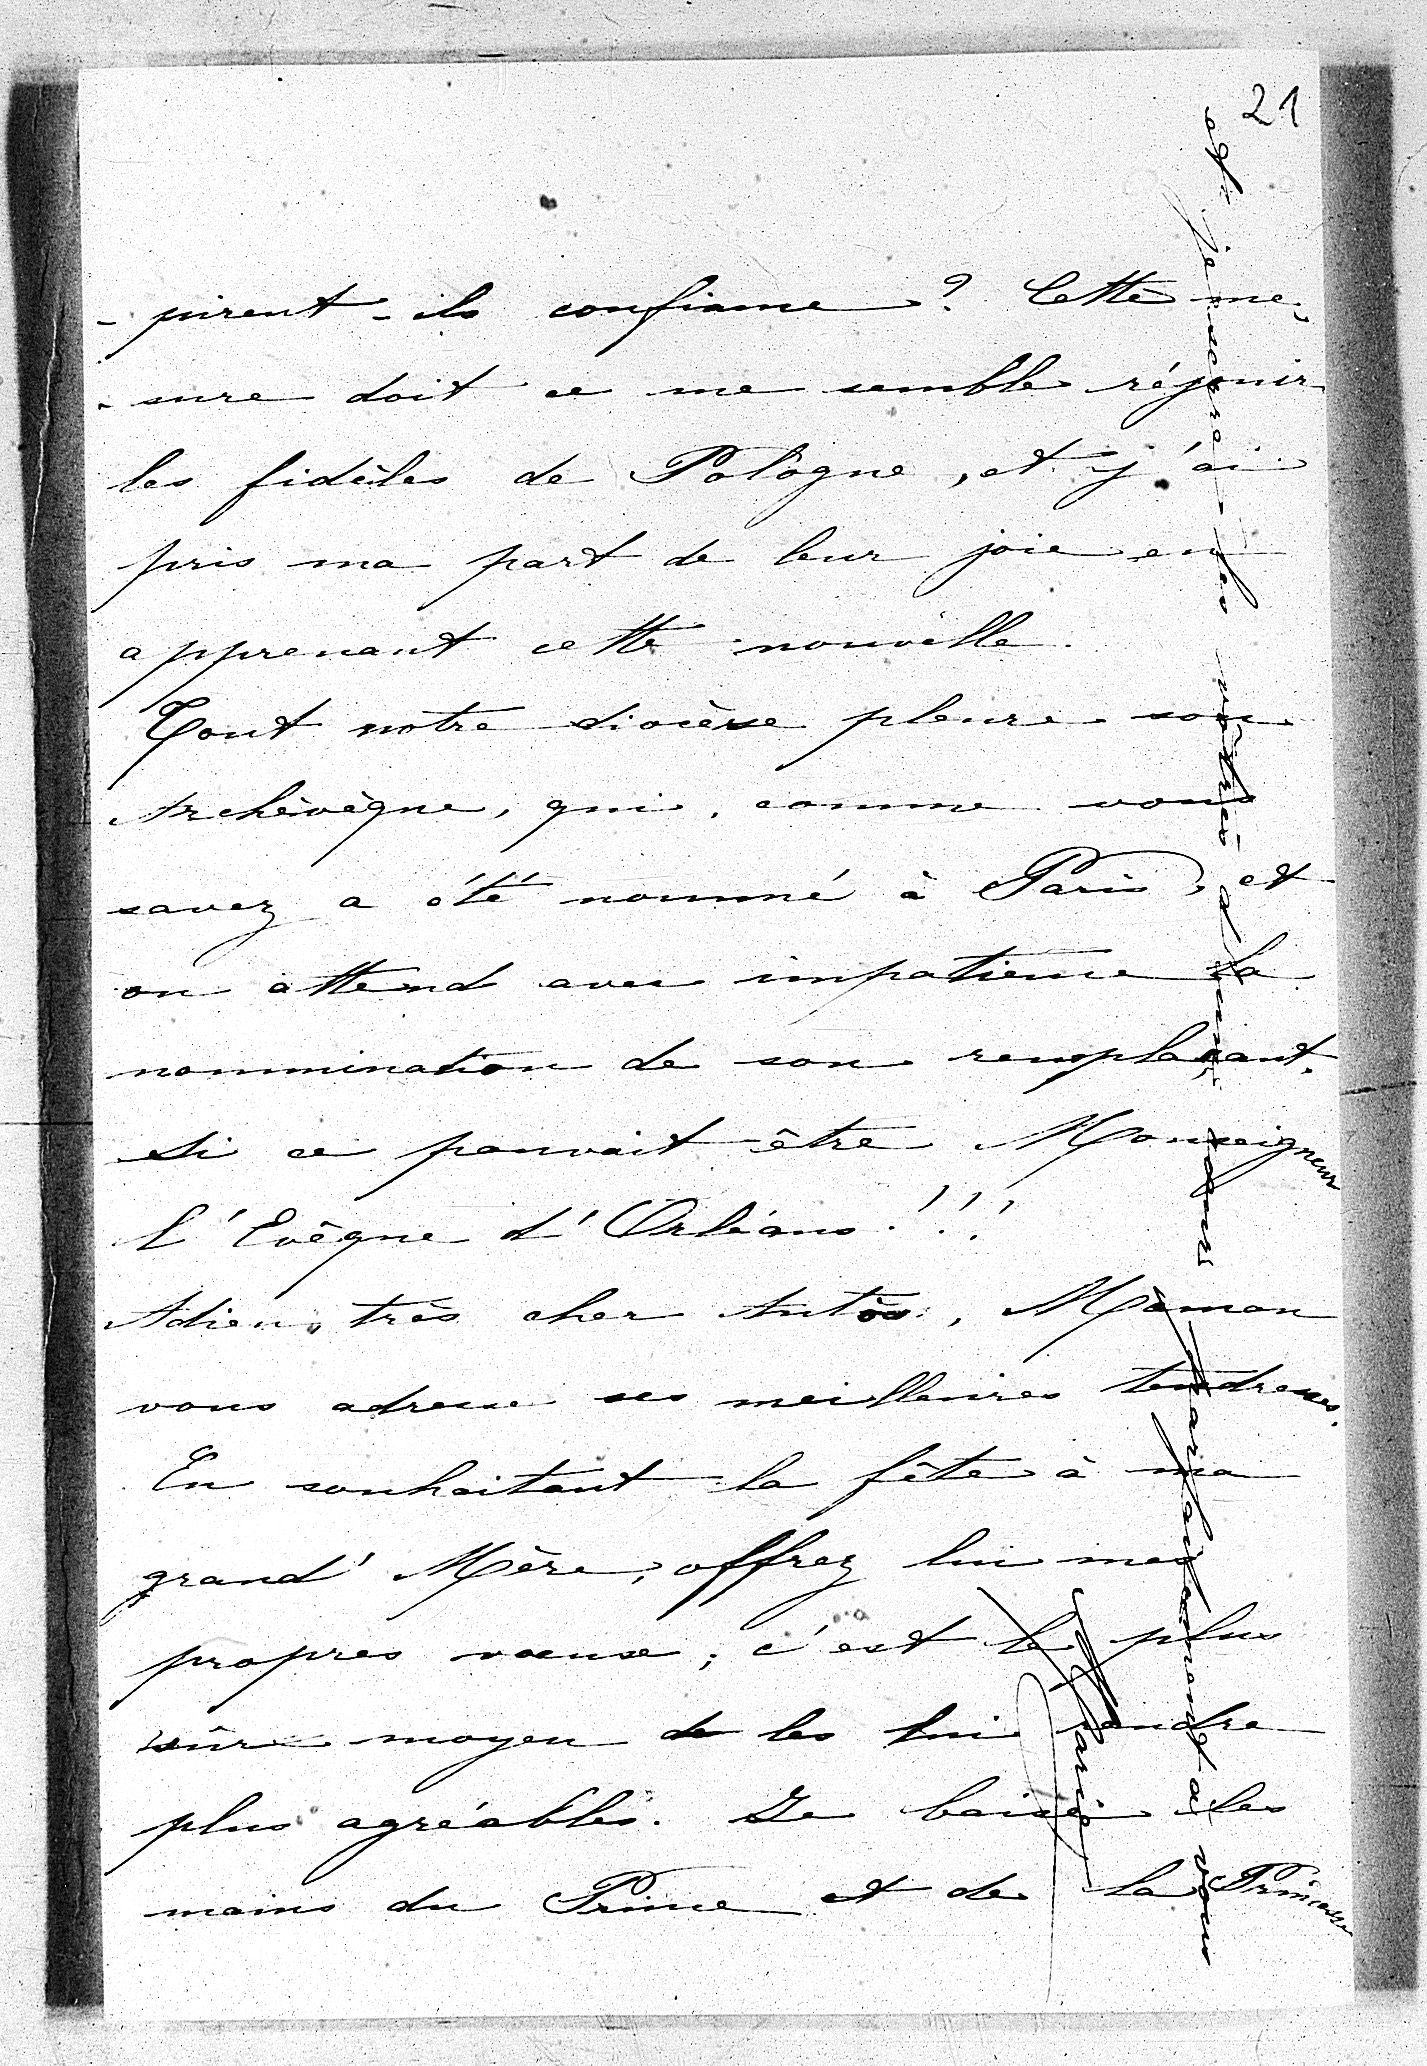 21
- pirent-ils confiance ? Cette me,
- sure doit ce me semble réjouir
les fidèles de Pologne, et j'ai
pris ma part de leur joie en
apprenant cette nouvelle.
Tout notre diocèse pleure son
Archévêque, qui, comme vous
savez a été nommé à Paris, et
on attend avec impatience la
nommination de son remplaçant.
Si ce pouvait être Monseigneur
l'Evêque d'Orléans !!!
Adieu, très cher Antos, Maman
vous adresse ses meilleures tendresses.
En souhaitant la fête à ma
grand' Mère, offrez lui mes
propres voeux ; c'est le plus
sûr moyen de les lui rendre
plus agréables. Je baise les
mains du Prince et de la Princesse
et je serre les vôtres à
parfaitement à vous
Marie